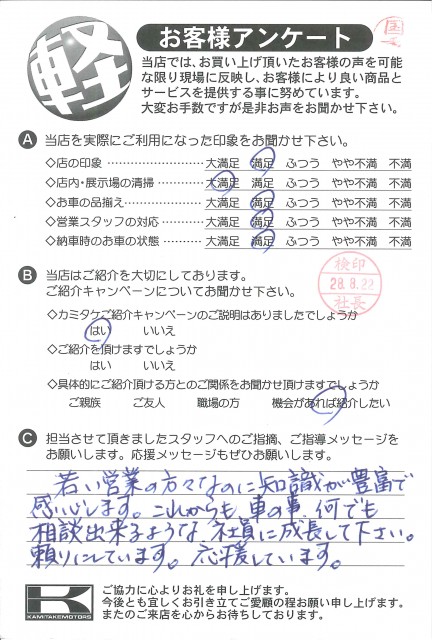 軽
お客様アンケート
当店では、お買い上げ頂いたお客様の声を可能
な限り現場に反映し、お客様により良い商品と
サービスを提供する事に努めています。
大変お手数ですが是非お声をお聞かせ下さい。
A 当店を実際にご利用になった印象をお聞かせ下さい。
◇店の印象 ………………… 大満足 満足 ふつう やや不満 不満
◇店内・展示場の清掃 ………… 大満足 満足 ふつう やや不満 不満
◇お車の品揃え ……………… 大満足 満足 ふつう やや不満 不満
◇営業スタッフの対応 ………… 大満足 満足 ふつう やや不満 不満
◇納車時のお車の状態 ………… 大満足 満足 ふつう やや不満 不満
B 当店はご紹介を大切にしてあります。
ご紹介キャンペーンについてお聞かせ下さい。
検印
28.8.22
社長
◇カミタケご紹介キャンペーンのご説明はありましたでしょうか
はい いいえ
◇ご紹介を頂けますでしょうか
はい いいえ
◇具体的にご紹介頂ける方とのご関係をお聞かせ頂けますでしょうか
ご親族 ご友人 職場の方 機会があれば紹介したい
C 担当させて頂きましたスタッフへのご指摘、ご指導メッセージを
お願いします。応援メッセージもぜひお願いします。
若い営業の方々なのに知識が豊富で
感心します。これからも車の事、何でも
相談出来るような社員に成長して下さい。
頼りにしています。応援しています。
K
KAMITAKEMOTORS
ご協力に心よりお礼を申し上げます。
今後とも宜しくお引き立てご愛顧の程お願い申し上げます。
またのご来店を心からお待ちしております。